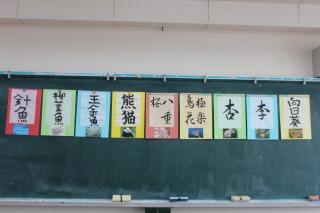 針魚
柳葉魚
熊猫
八重
桜
極楽
鳥花
杏
李
向日葵